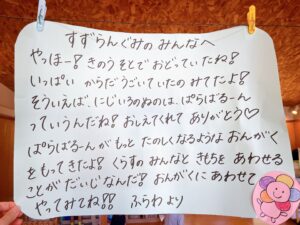 すずらんぐみの みんなへ
やっほー! きのう そとで おどっていたね!
いっぱい からだうごいていたの みてたよ!
そういえば、にじいろのぬのは、ぱらばるーん
っていうんだね! おしえてくれて ありがとう♡
ぱらばるーんが もっと たのしくなるような おんがく
をもってきたよ! くらすの みんなと きもちを あわせる
ことが だいじなんだ! おんがくに あわせて
やってみてね!! ふらわ より